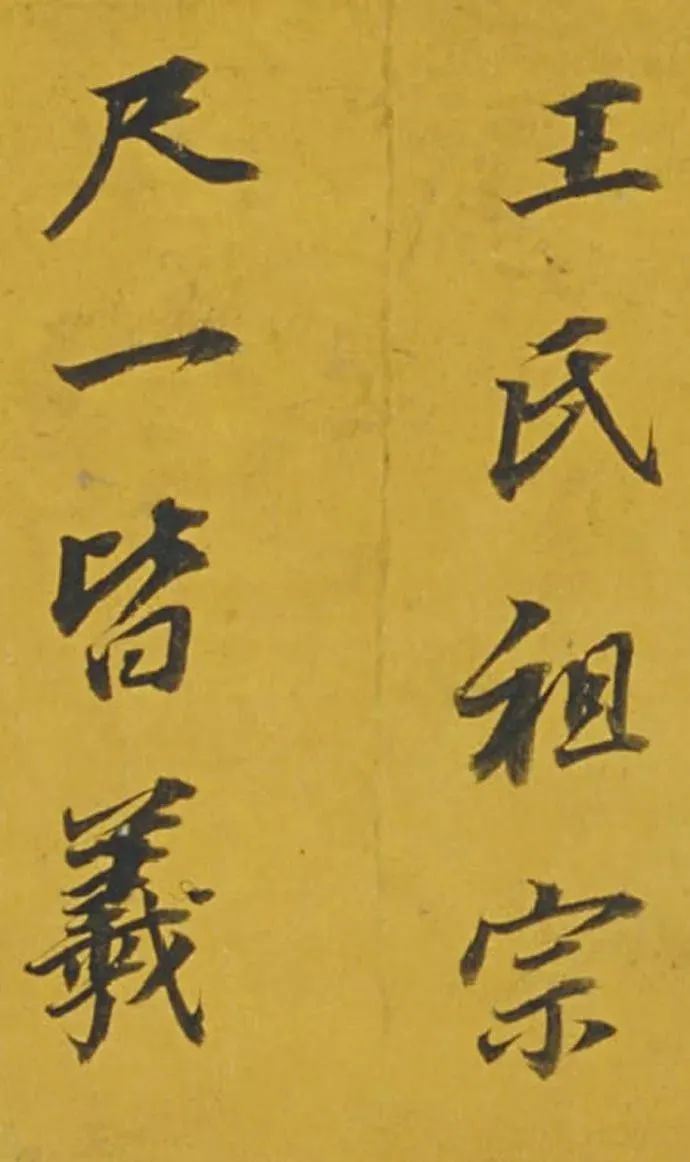 王氏祖宗
尺一皆羲